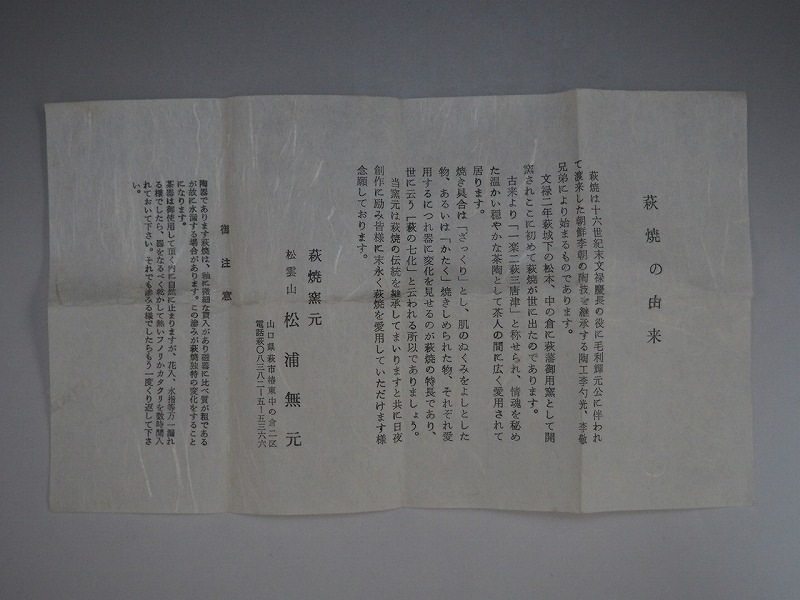 萩焼の由来
萩焼は十六世紀末文禄慶長の役に毛利輝元公に伴われ
て渡来した朝鮮李朝の陶技を継承する陶工李勺光、李敬
兄弟により始まるものであります。
文禄二年萩城下の松本、中の倉に萩藩御用窯として開
窯されここに初めて萩焼が世に出たのであります。
古来より「一楽二萩三唐津」と称せられ、情魂を秘め
た温かい穏やかな茶陶として茶人の間に広く愛用されて
居ります。
焼き具合は「ざっくり」とし、肌のぬくみをよしとした
物、あるいは「かたく」焼きしめられた物、それぞれ愛
用するにつれ器に変化を見せるのが萩焼の特長であり、
世に云う「萩の七化」と云われる所以でありましょう。
当窯元は萩焼の伝統を継承してまいりますと共に日夜
創作に励み皆様に末永く萩焼を愛用していただけます様
念願しております。
萩焼窯元
松雲山 松浦無元
山口県萩市椿東中の倉二区
電話萩〇八三八二―五―五三六六
御注意
陶器であります萩焼は、釉に微細な貫入があり磁器に比べ質が粗である
が故に水漏する場合があります。この滲みが萩焼独特の変化をすること
になります。
茶器は御使用して頂く内に自然に止まりますが、花入、水指等万一漏れ
る様でしたら、器をなるべく乾かして熱いフノリかカタクリを数時間入
れておいて下さい。それでも滲みる様でしたらもう一度くり返して下さ
い。